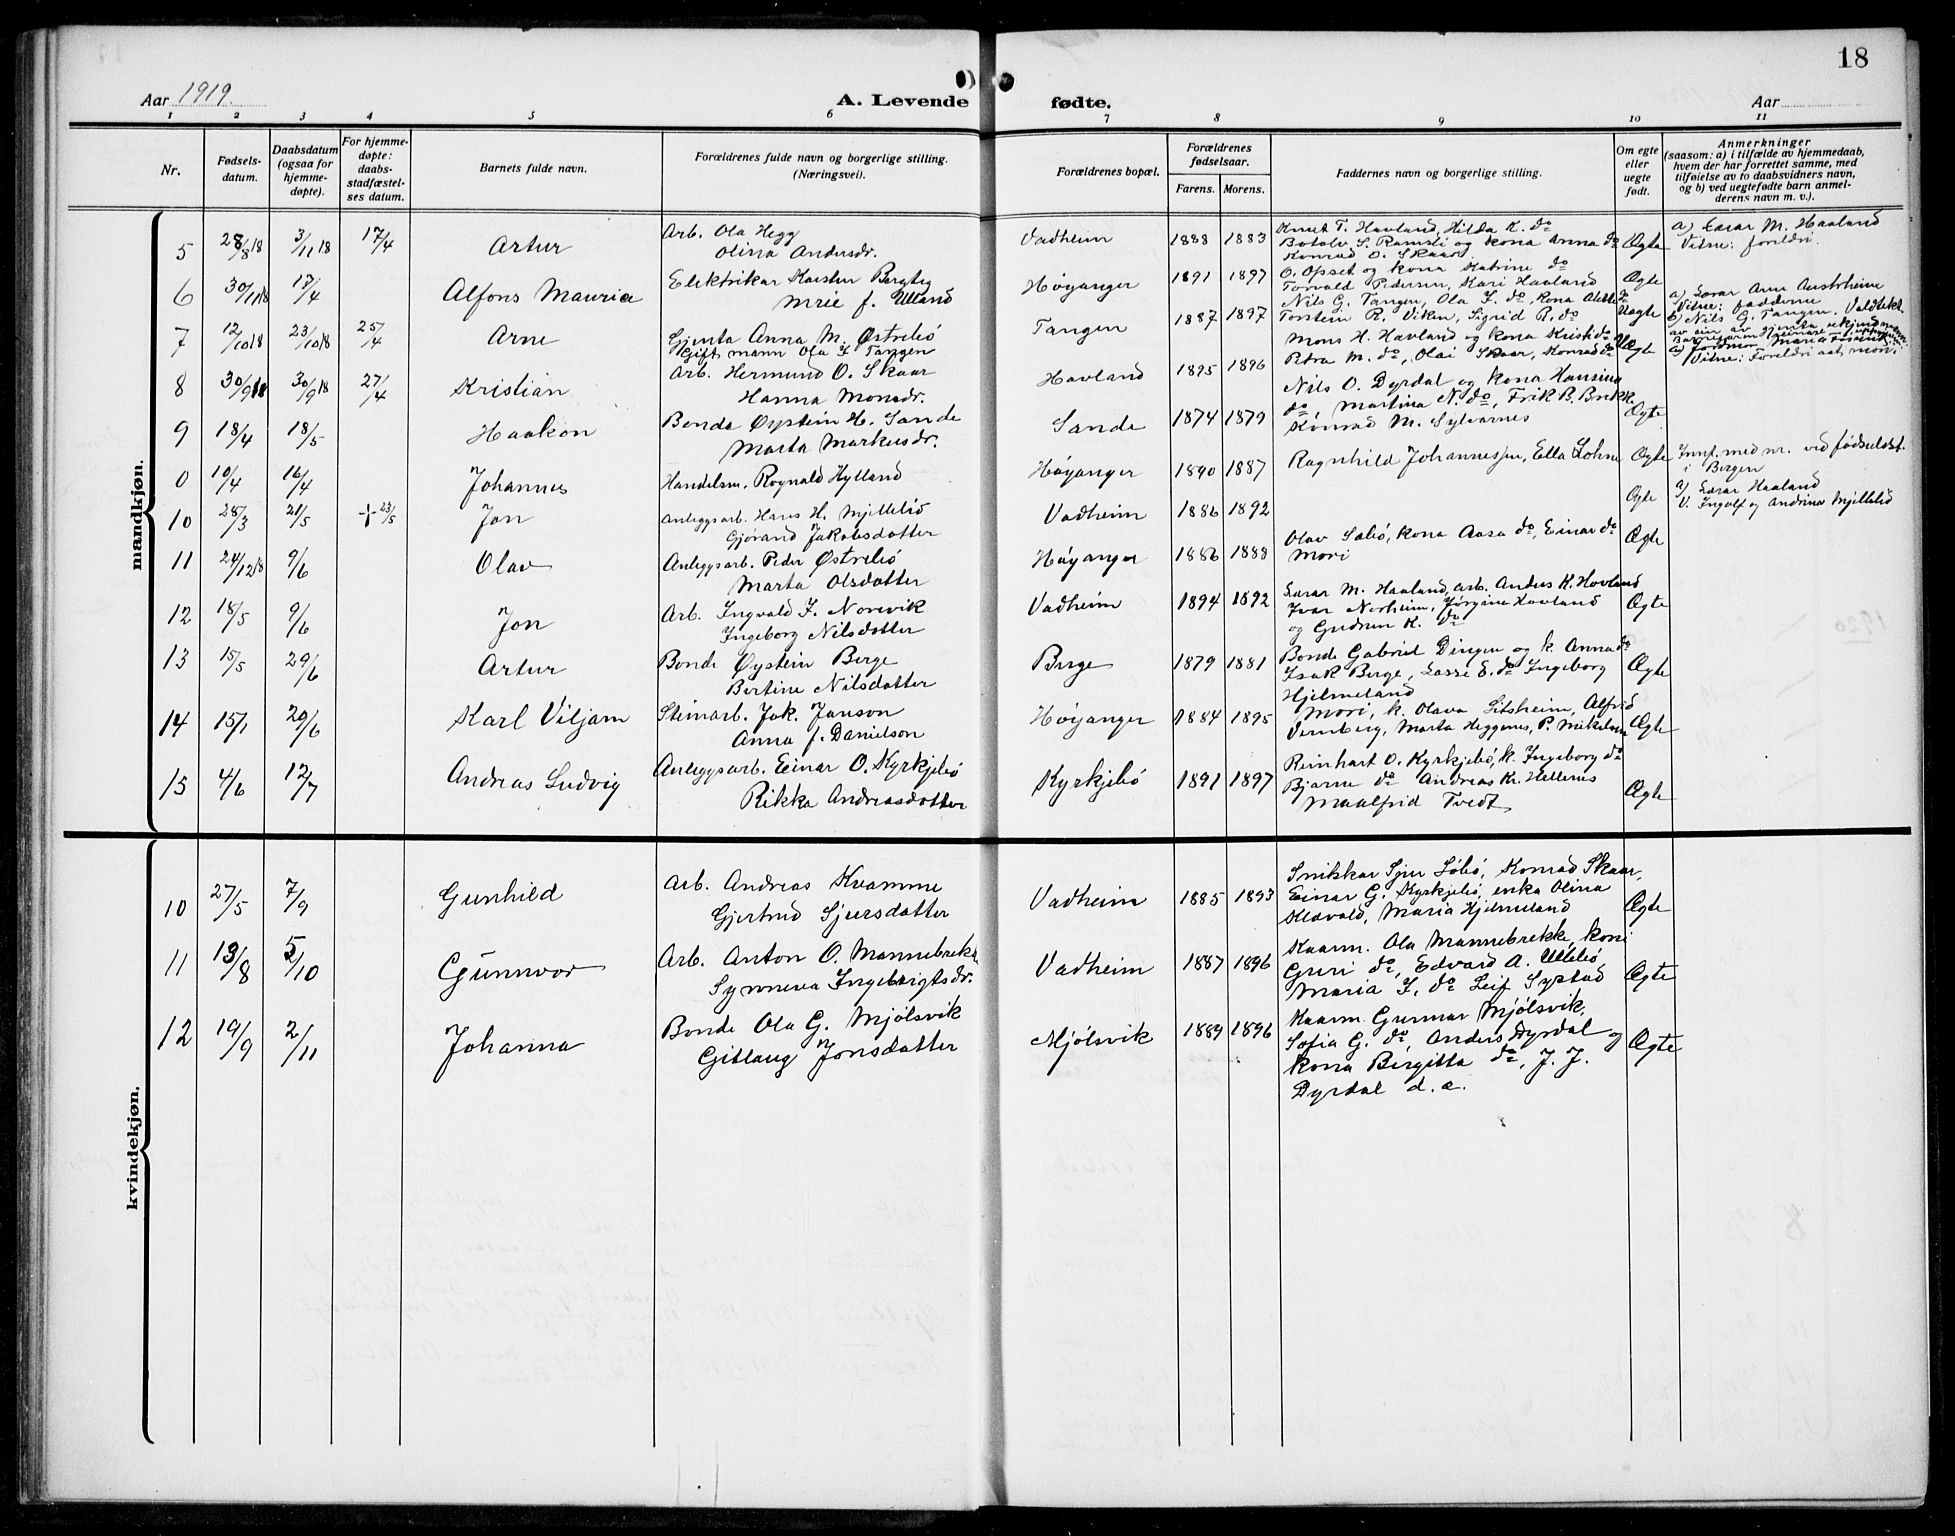 18
Aar 1919.
A. Levende fødte.
Aar
1 2 3 4 5 6 7 8 9 10 11
Nr.
Fødsels-
datum.
Daabsdatum
(ogsaa for
hjemme-
døpte).
For hjemme-
døpte:
daabs-
stadfæstel-
ses datum.
Barnets fulde navn.
Forældrenes fulde navn og borgerlige stilling.
(Næringsvei).
Forældrenes bopæl.
Forældrenes
fødselsaar.
Farens. Morens.
Faddernes navn og borgerlige stilling.
Om egte
eller
uegte
født.
Anmerkninger
(saasom: a) i tilfælde av hjemmedaab,
hvem der har forrettet samme, med
tilføielse av to daabsvidners navn,
og b) ved uegtefødte barn anmel-
derens navn m. v.).
mandkjøn.
5 28/8 18 3/11 18 17/4 Artur
Arb. Ola Hegg
Olina Andersdr.
Vadheim 1888 1883
Knut T. Havland, Hilda K. do
Botolv S. Ramsli og kona Anna do
Konrad O. Skaar
Ægte
a) Lærar M. Haaland
Vitne: foreldri.
6 30/11 18 17/4 Alfons Mauries
Elektrikar Karsten Bergteg
Mrie f. Ulland
Høyanger 1891 1897
O. Opset og kona Katrine do
Torvald Pedersen, Kari Havland
Ægte
a) Lærar Arne Austrheim
Vitne: fadderne
7 12/10 18 23/10 18 25/4 Arne
Gjenta Anna M. Østrebø
Gift mann Ola I Tangen
Tangen 1887 1897
Nils G. Tangen, Ola I. do, kona Alette do
Torstein R. Viken, Sigrid R. do
Uægte
b) Nils G. Tangen,
8 30/9 18 30/9 18 27/4 Kristian
Arb. Hermund O. Skaar
Hanna Monsdr.
Havland 1895 1896
Mons H. Havland og kona Kristi do
Petra M. do, Olai Skaar, Konrad do
Ægte
Vitne: Foreldri aat mori
9 18/4 18/5 Haakon
Bonde Øystein H. Sande
Marta Markusdr.
Sande 1874 1879
Nils O. Dyrdal og kona Hansina
do, Martina N. do, Erik B. Brekk
Konrad M. Sylvarnes
Ægte
0 10/4 16/4 Johannes
Handelsm. Rognald Hylland
Høyanger 1890 1887
Ragnhild Johannessen, Ella Lohne
Ægte
Innf. med nr. ved fødselsst.
i Bergen
10 28/3 21/5 + 23/5 Jon
Anleggsarb. Hans H. Mjellelid
Gjørand Jakobsdatter
Vadheim 1886 1892
Ægte
a) Lærar Haaland
V. Ingolf og Andrina Mjellelid
11 24/12 18 9/6 Olav
Anleggsarb. Peder Østrebø
Marta Olsdatter
Høyanger 1886 1888
Olav Sæbø, kona Aasa do, Einar do
Mori
Ægte
12 18/5 9/6 Jon
Arb. Ingvald J. Norevik
Ingeborg Nilsdatter
Vadheim 1894 1892
Lærar M. Haaland, arb. Anders K. Hovland
Ivar Nerheim, Jørgina Hovland
og Gudrun K. do
Ægte
13 15/5 29/6 Artur
Bonde Øystein Berge
Bertine Nilsdatter
Berge 1879 1881
Bonde Gabriel Dingen og k. Anna do
Isak Berge, Lasse E. do Ingeborg
Hjelmeland
Ægte
14 15/1 29/6 Karl Viljam
Steinarb. Jak. Janson
Anna f. Danielson
Høyanger 1884 1895
Mori, k. Olava Sitsheim, Alfrid
Vernberg, Marta Heggenes, P. Mikelsen
Ægte
15 4/6 12/7 Andreas Ludvig
Anleggsarb. Einar O. Kyrkjebø
Rikka Andreasdotter
Kyrkjebø 1891 1897
Reinhart O. Kyrkjebø, k. Ingeborg do
Bjarne do Andreas Kr. Hellenes
Maalfrid Tvedt
Ægte
kvindekjøn.
10 27/5 7/9 Gunhild
Arb. Andreas Kvamme
Gjertrud Sjursdatter
Vadheim 1885 1893
Snikkar Sjur Søbø, Konrad Skaar,
Einar G. Kyrkjebø, enka Olina
Maria Hjelmeland
Ægte
11 13/8 5/10 Gunnvor
Arb. Anton O. Mannebrekke
Synneva Ingebrigtsdr.
Vadheim 1887 1896
Kaarm. Ola Mannebrekke, kone
Guri do, Edvard A. Ullebø
Maria I. do Leif Systad
Ægte
12 19/9 2/11 Johanna
Bonde Ola G. Mjølsvik
Gitlaug Jonsdatter
Mjølsvik 1889 1896
Kaarm. Gunnar Mjølsvik,
Sofia G. do, Anders Dyrdal og
kona Birgitta do, J. J.
Dyrdal d. e.
Ægte
1920